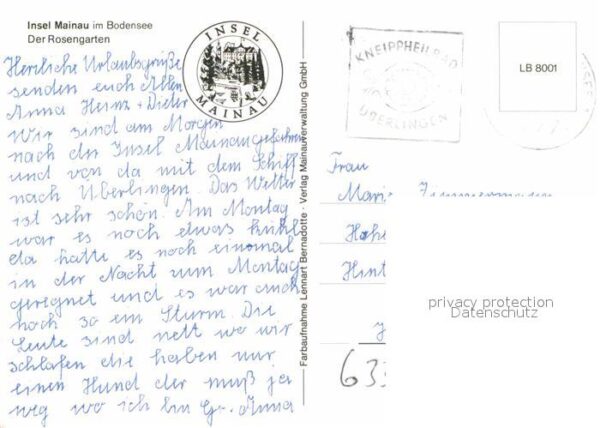 Insel Mainau im Bodensee
Der Rosengarten
INSEL
MAINAU
Herzliche Urlaubsgrüße
senden euch Allen
Anna Heim + Dieter
Wir sind am Morgen
nach der Insel Mainau gefahren
und von da mit dem Schiff
nach Überlingen. Das Wetter
ist sehr schön. Am Montag
war es noch etwas kühl
da hatte es noch einmal
in der Nacht zum Montag
geregnet und es war auch
noch so ein Sturm. Die
Leute sind nett wo wir
schlafen die haben nur
einen Hund der muß ja
weg wo ich bin Gr. Anna
Farbaufnahme Lennart Bernadotte · Verlag Mainauverwaltung GmbH
KNEIPPHEILBAD
ÜBERLINGEN
LB 8001
Frau
privacy protection
Datenschutz